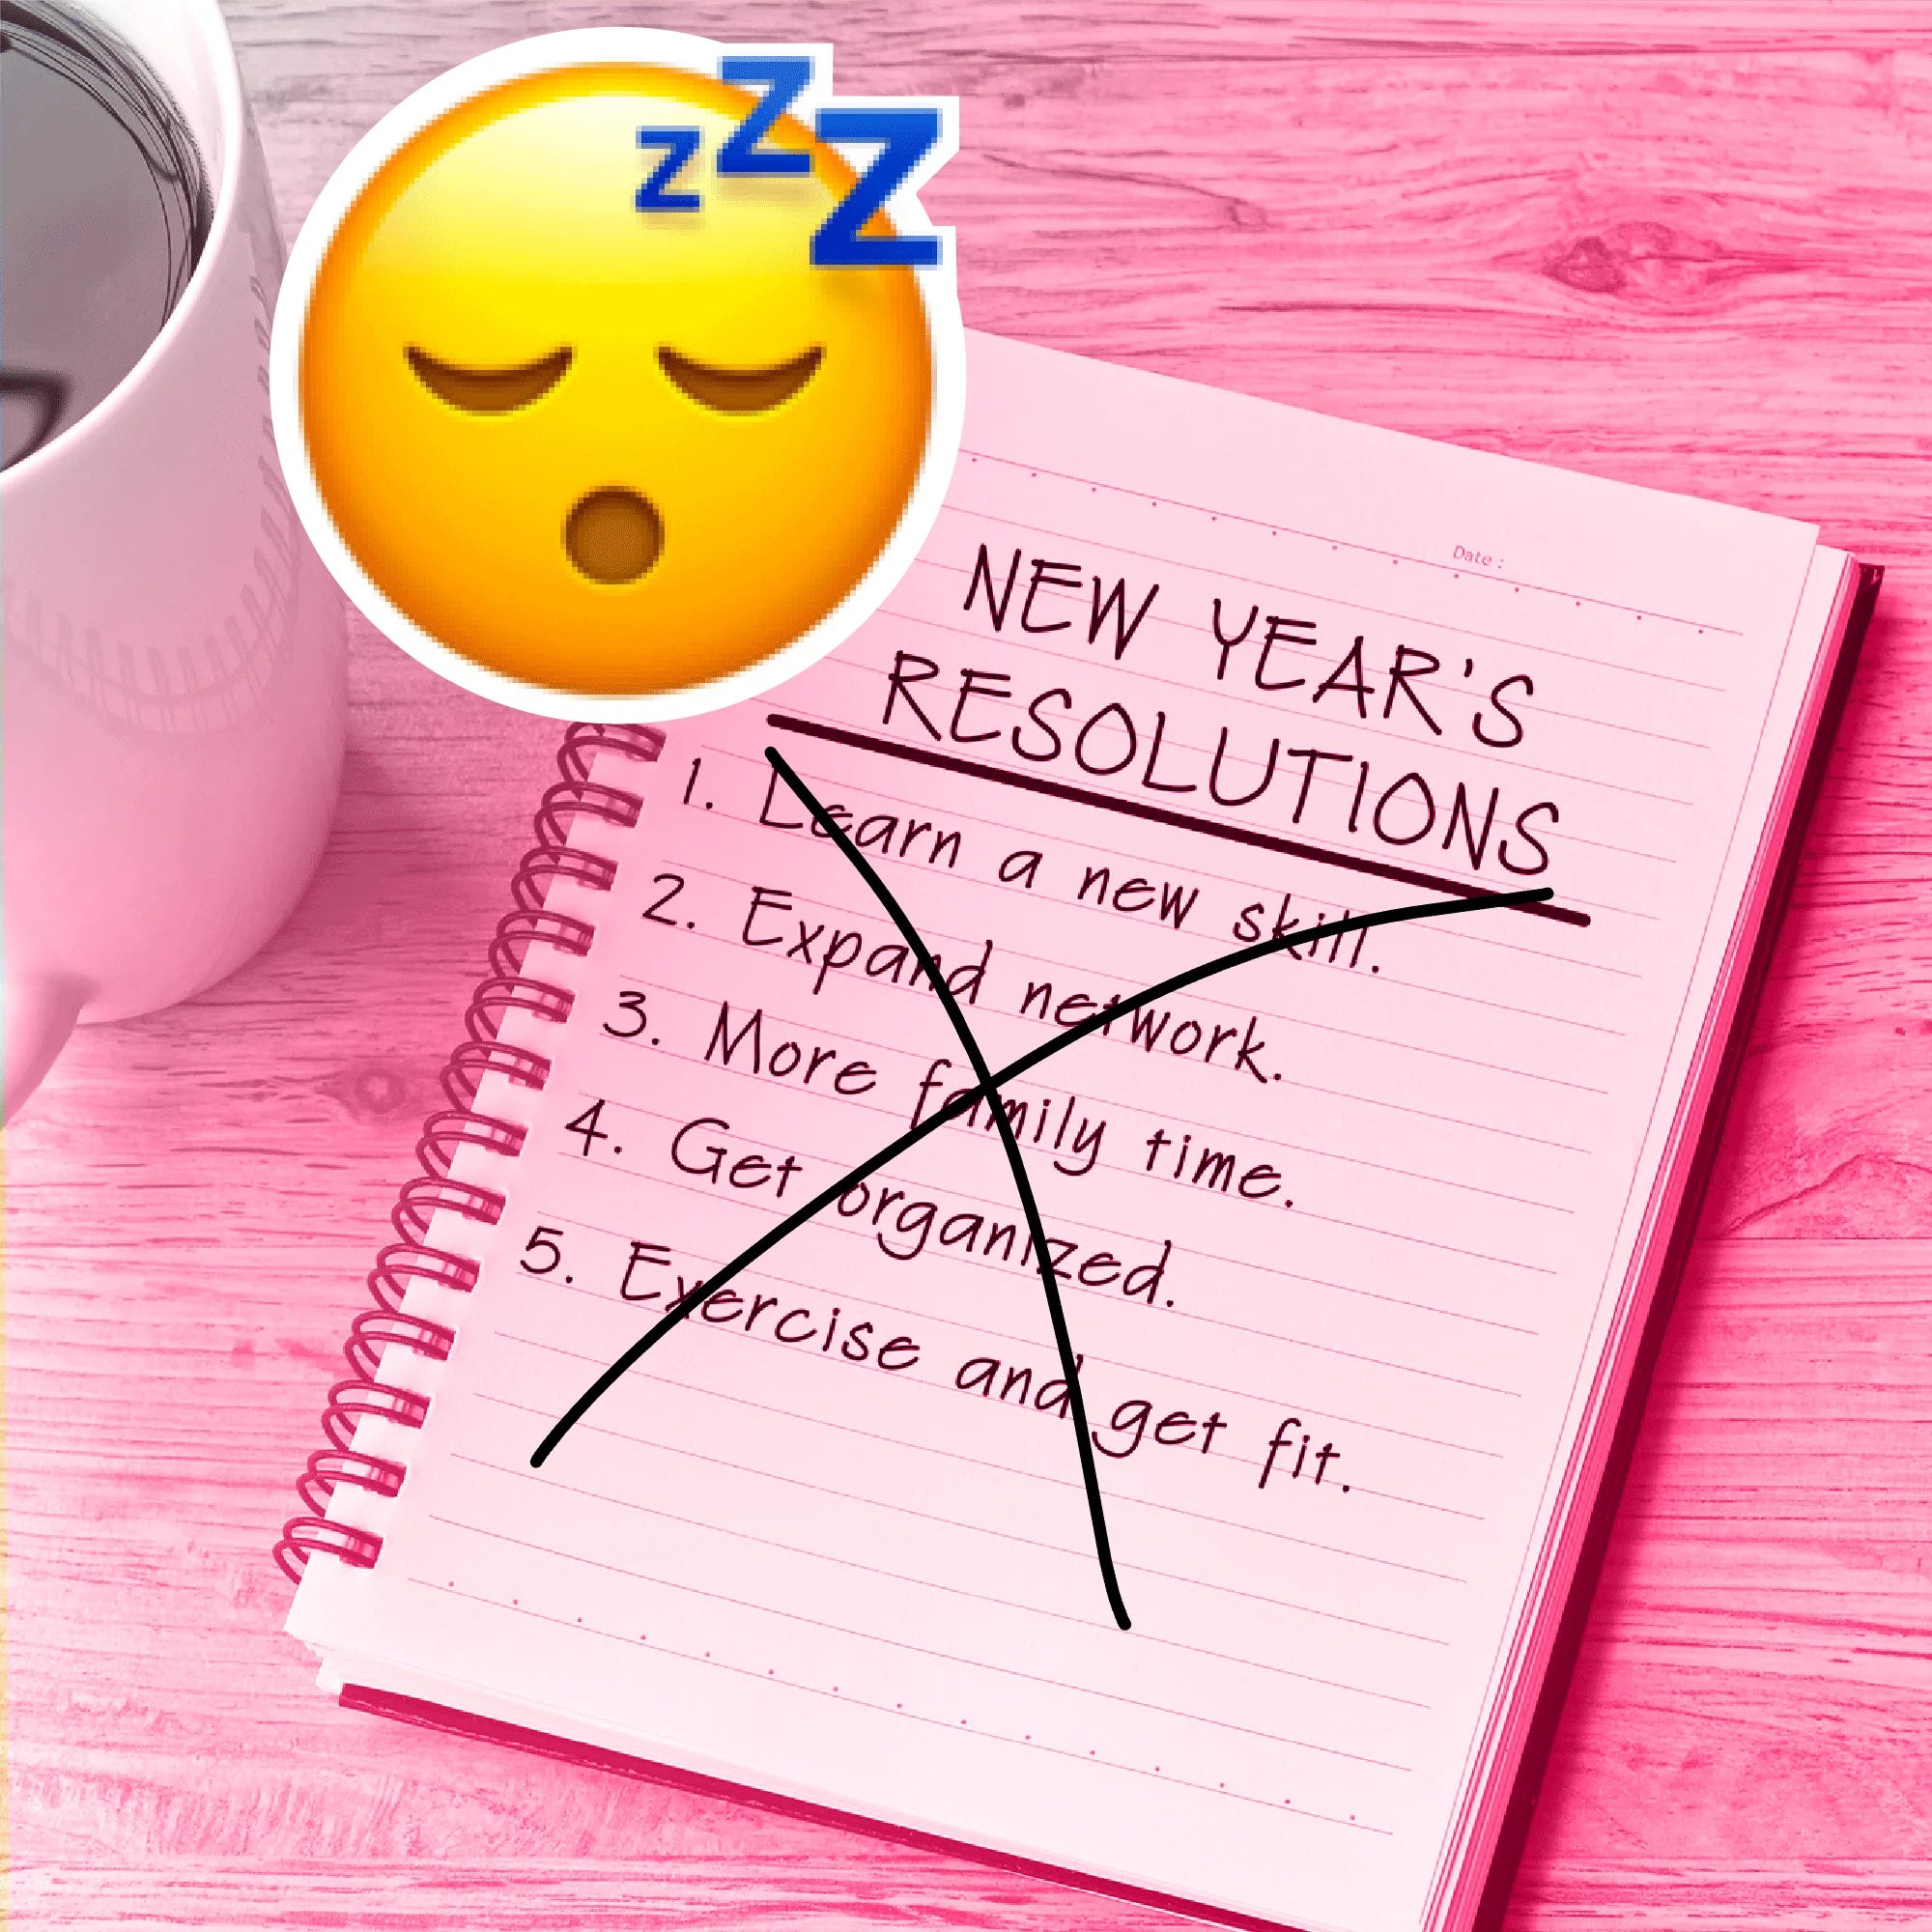 z Z Z
Date :
NEW YEAR'S
RESOLUTIONS
1. Learn a new skill.
2. Expand network.
3. More family time.
4. Get organized.
5. Exercise and get fit.